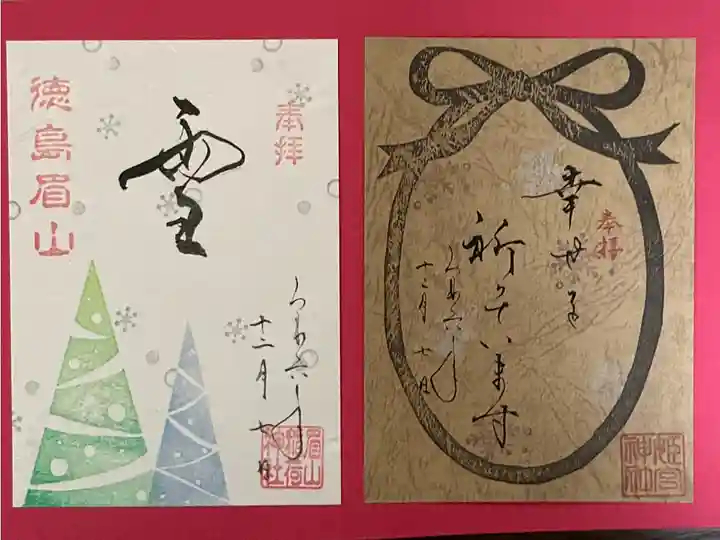 奉拝
雪
徳島眉山
令和六年
十二月七日
眉山
稲荷
神社
奉拝
幸せを
祈っています
令和六年
十二月七日
姫宮
神社